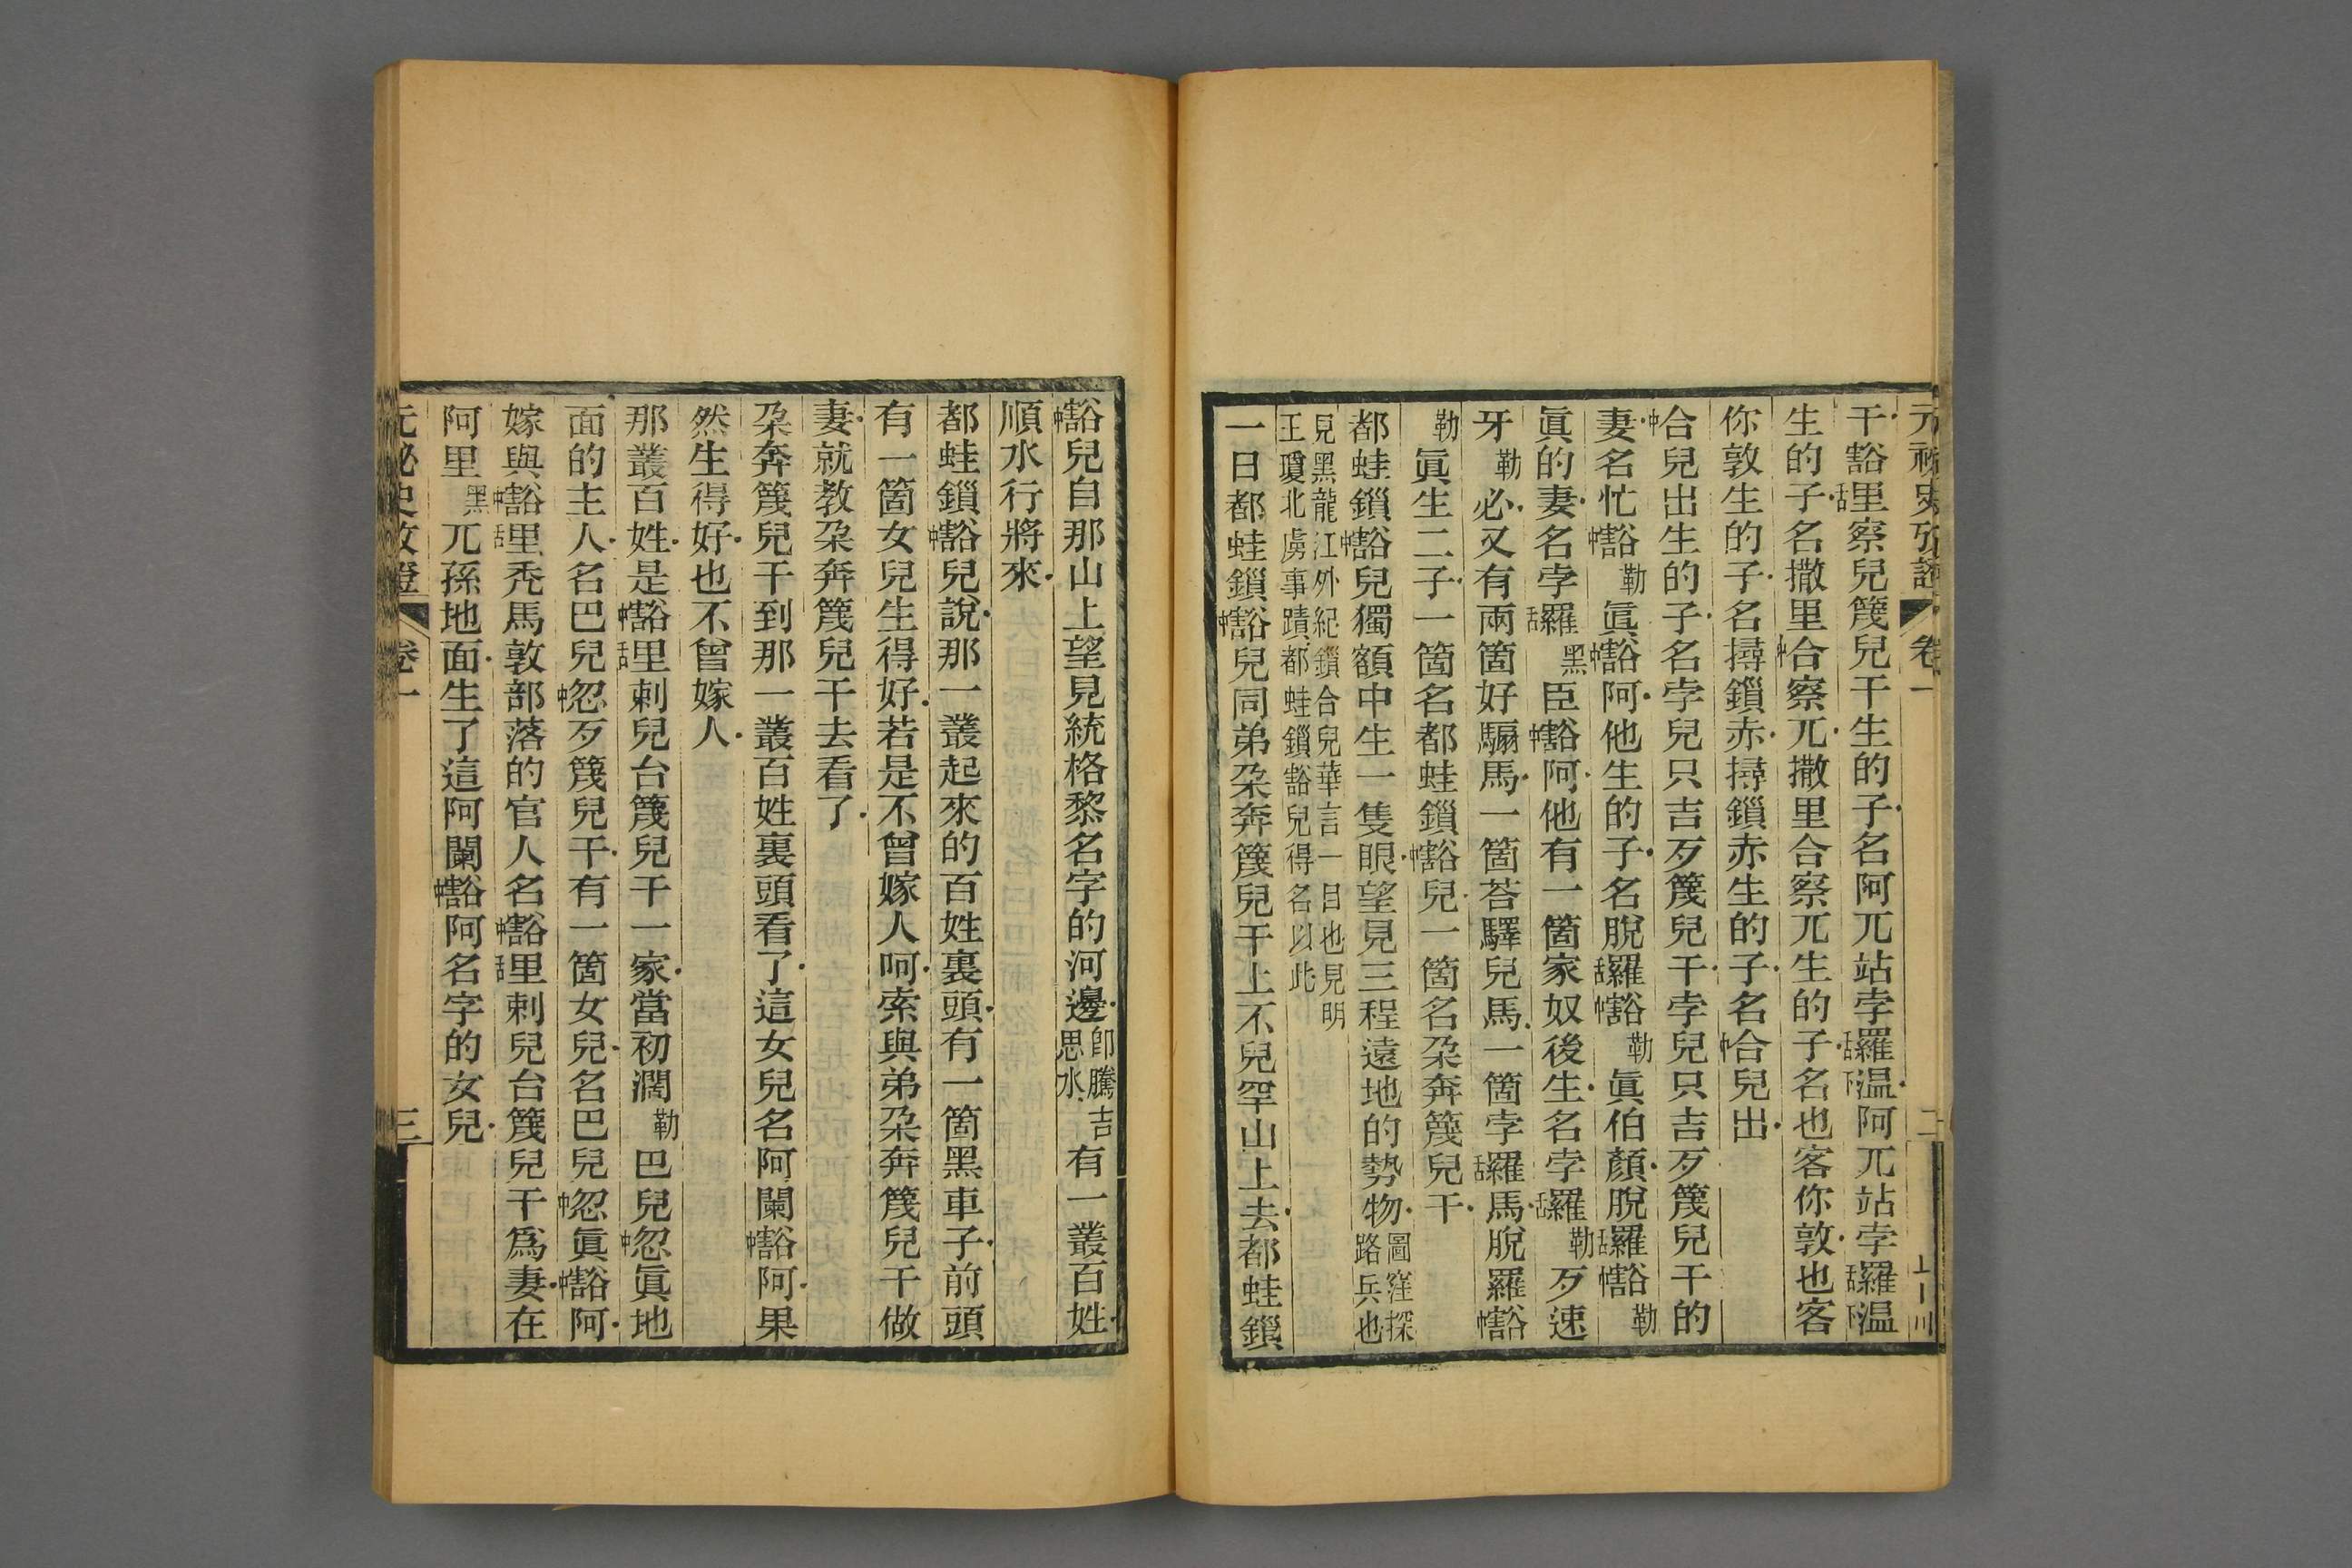 元秘史攷證 卷一 二
干豁里察兒篾兒干生的子名阿兀站孛羅温阿兀站孛羅温
生的子名撒里合察兀撒里合察兀生的子名也客你敦也客
你敦生的子名撏鎖赤撏鎖赤生的子名合兒出
合兒出生的子名孛兒只吉歹篾兒干孛兒只吉歹篾兒干的
妻名忙豁勒眞豁阿他生的子名脫羅豁勒眞伯顏脫羅豁勒
眞的妻名孛羅黑臣豁阿他有一箇家奴後生名孛羅勒歹速
牙勒必又有兩箇好騸馬一箇荅驛兒馬一箇孛羅馬脫羅豁
勒眞生二子一箇名都蛙鎖豁兒一箇名朶奔篾兒干
都蛙鎖豁兒獨額中生一隻眼望見三程遠地的勢物圖窪探路兵也
見黑龍江外紀鎖合兒華言一目也見明
王瓊北虜事蹟都蛙鎖豁兒得名以此
一日都蛙鎖豁兒同弟朶奔篾兒干上不兒罕山上去都蛙鎖
豁兒自那山上望見統格黎名字的河邊卽騰吉思水有一叢百姓
順水行將來
都蛙鎖豁兒說那一叢起來的百姓裏頭有一箇黑車子前頭
有一箇女兒生得好若是不曾嫁人呵索與弟朶奔篾兒干做
妻就教朶奔篾兒干去看了
朶奔篾兒干到那一叢百姓裏頭看了這女兒名阿闌豁阿果
然生得好也不曾嫁人
那叢百姓是豁里剌兒台篾兒干一家當初濶勒巴兒忽眞地
面的主人名巴兒忽歹篾兒干有一箇女兒名巴兒忽眞豁阿
嫁與豁里禿馬敦部落的官人名豁里剌兒台篾兒干爲妻在
阿里黑兀孫地面生了這阿闌豁阿名字的女兒
元秘史攷證 卷一 三